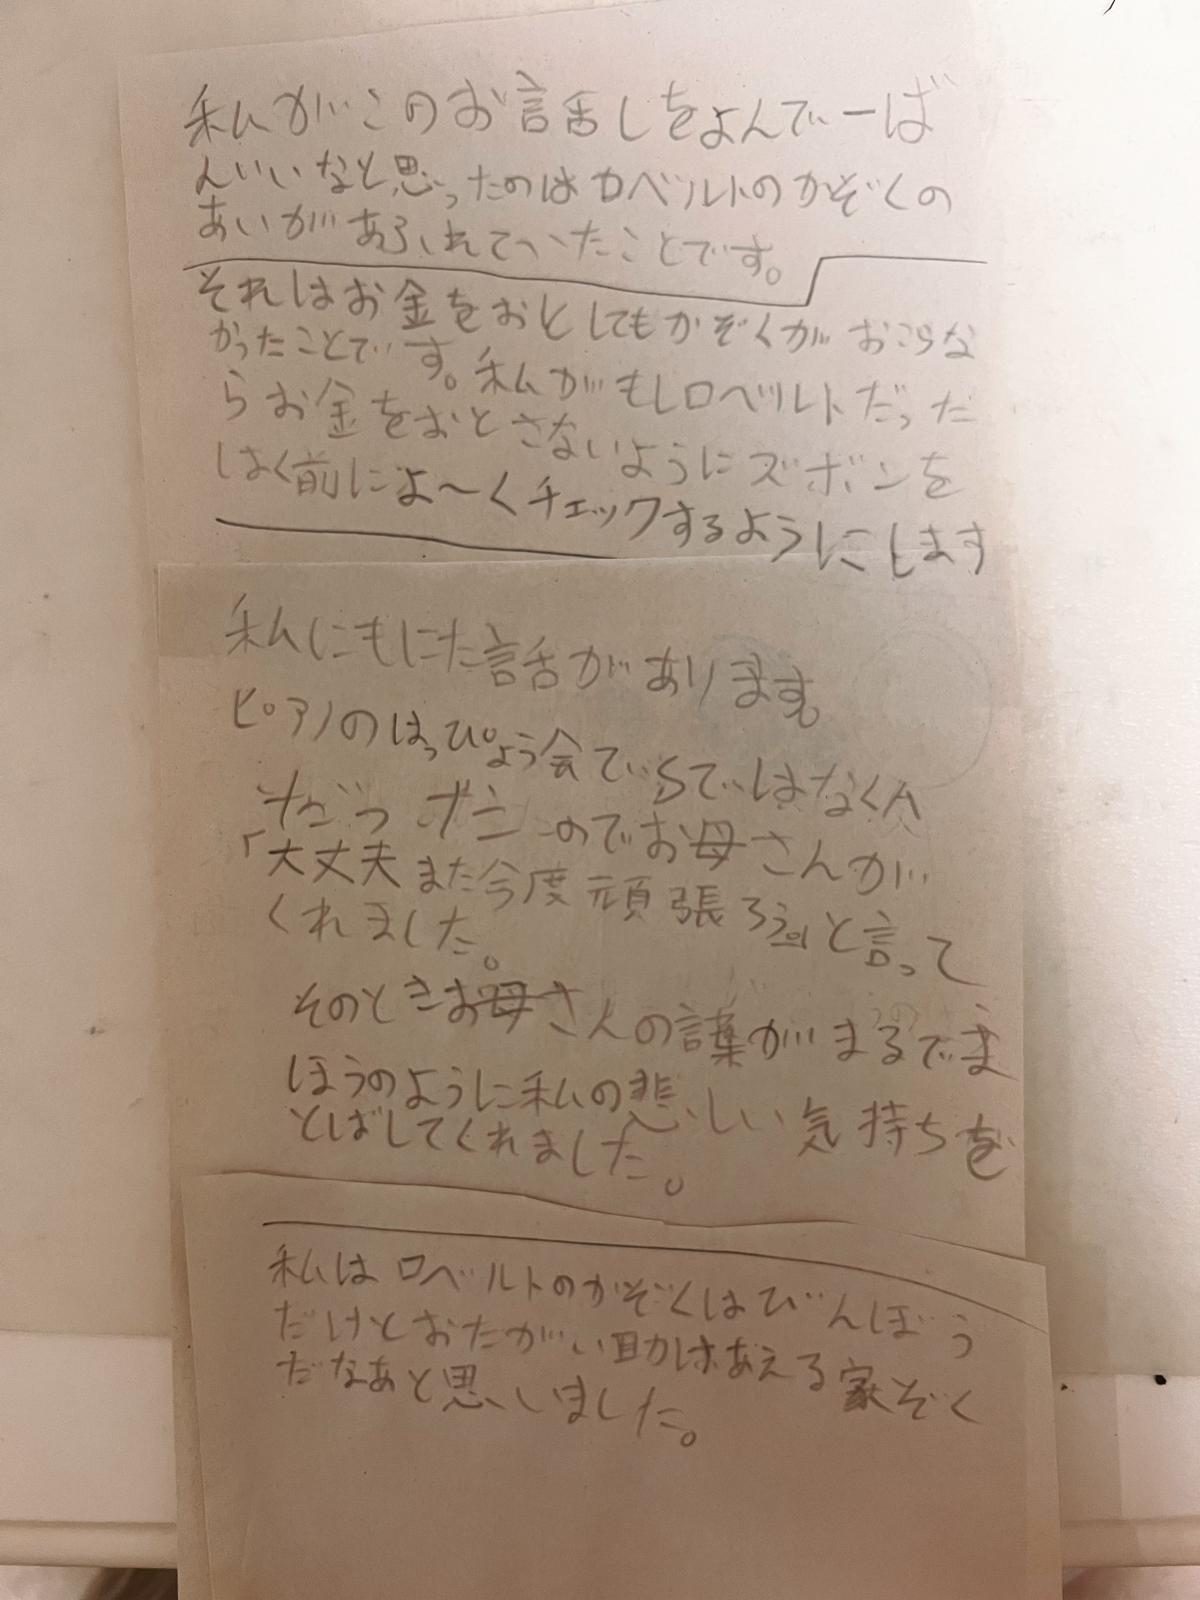 私がこのお話しをよんで一ば
んいいなと思ったのはロベルトのかぞくの
あいがあふれていたことです。
それはお金をおとしてもかぞくがおこらな
かったことです。私がもしロベルトだった
らお金をおとさないようにズボンを
はく前によ〜くチェックするようにします
私にもにた話があります。
ピアノのはっぴょう会でSではなくA
だっ のでお母さんが
「大丈夫また今度頑張ろう」と言って
くれました。
そのときお母さんの言葉がまるでま
ほうのように私の悲しい気持ちを
とばしてくれました。
私はロベルトのかぞくはびんぼう
だけとおたがい助けあえる家ぞく
だなあと思いました。